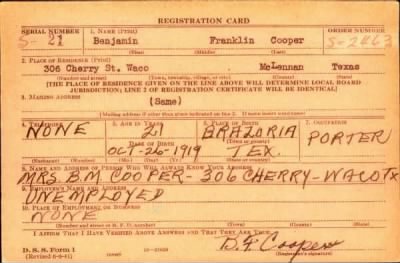 REGISTRATION CARD
SERIAL NUMBER 1. NAME (Print) ORDER NUMBER
S- 21 Benjamin Franklin Cooper S-2463
(First) (Middle) (Last)
2. PLACE OF RESIDENCE (Print)
306 Cherry St. Waco McLennan Texas
(Number and street) (Town, township, village, or city) (County) (State)
[THE PLACE OF RESIDENCE GIVEN ON THE LINE ABOVE WILL DETERMINE LOCAL BOARD
JURISDICTION; LINE 2 OF REGISTRATION CERTIFICATE WILL BE IDENTICAL]
3. MAILING ADDRESS
(Same)
[Mailing address if other than place indicated on line 2. If same insert word same]
4. TELEPHONE 5. AGE IN YEARS 6. PLACE OF BIRTH 7. OCCUPATION
NONE 21 BRAZORIA PORTER
DATE OF BIRTH (Town or county)
OCT-26-1919 TEX.
(Exchange) (Number) (Mo.) (Day) (Yr.) (State or country)
8. NAME AND ADDRESS OF PERSON WHO WILL ALWAYS KNOW YOUR ADDRESS
MRS. B.M. COOPER-306 CHERRY-WACO TX
9. EMPLOYER'S NAME AND ADDRESS
UNEMPLOYED
10. PLACE OF EMPLOYMENT OR BUSINESS
NONE
(Number and street or R. F. D. number) (Town) (County) (State)
I AFFIRM THAT I HAVE VERIFIED ABOVE ANSWERS AND THAT THEY ARE TRUE.
D. S. S. Form 1
(Revised 6-9-41)
B. F. Cooper